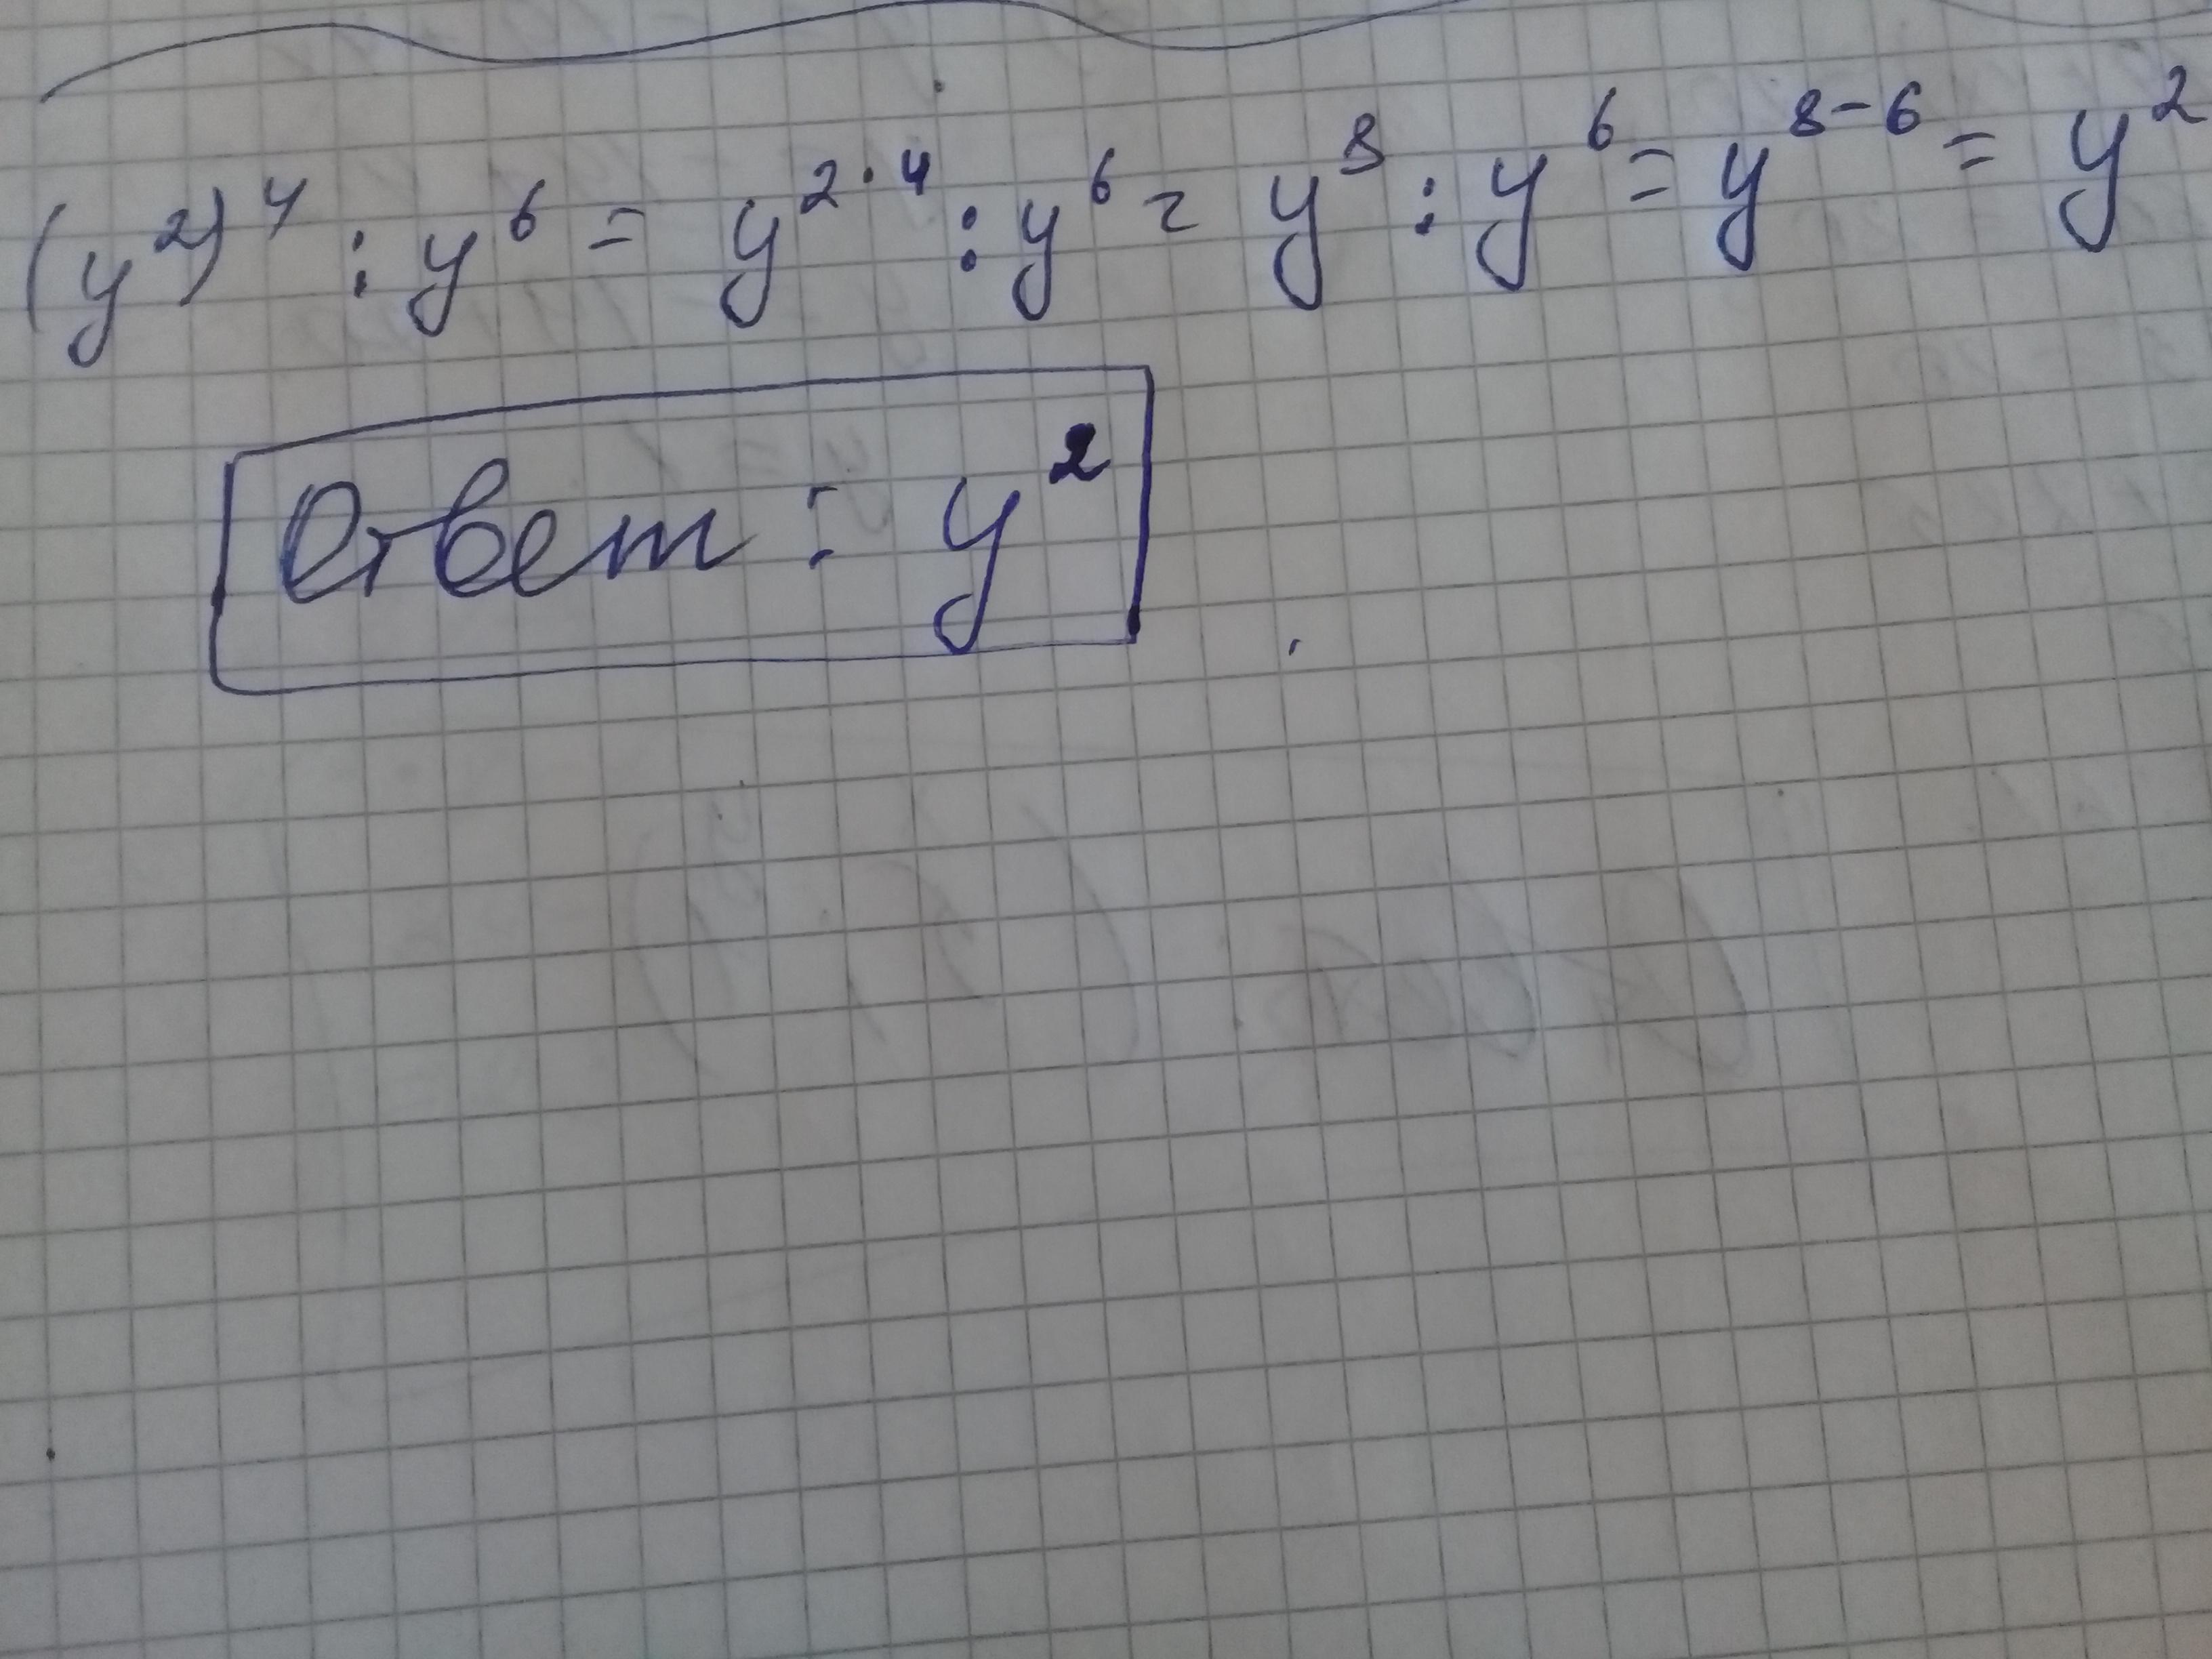 (y²)⁴ : y⁶ = y²·⁴ : y⁶ = y⁸ : y⁶ = y⁸⁻⁶ = y²
Ответ : y²